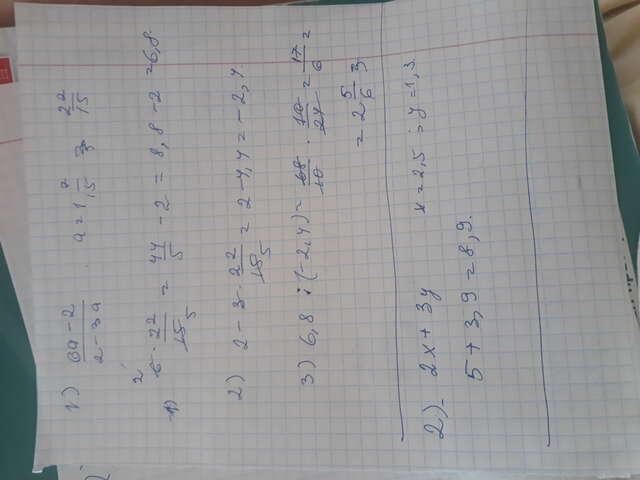 1) (6a-2)/(2-3a) . a=1 7/15 = 22/15
1) 2 6 · 22/15 5 = 44/5 - 2 = 8,8-2 = 6,8.
2) 2 - 3 · 22/15 5 = 2-4,4 = -2,4
3) 6,8 : (-2,4) = 68/10 · 10/24 = 17/6 =
= 2 5/6
2) 2x+3y x=2,5 ; y=1,3.
5+3,9=8,9.